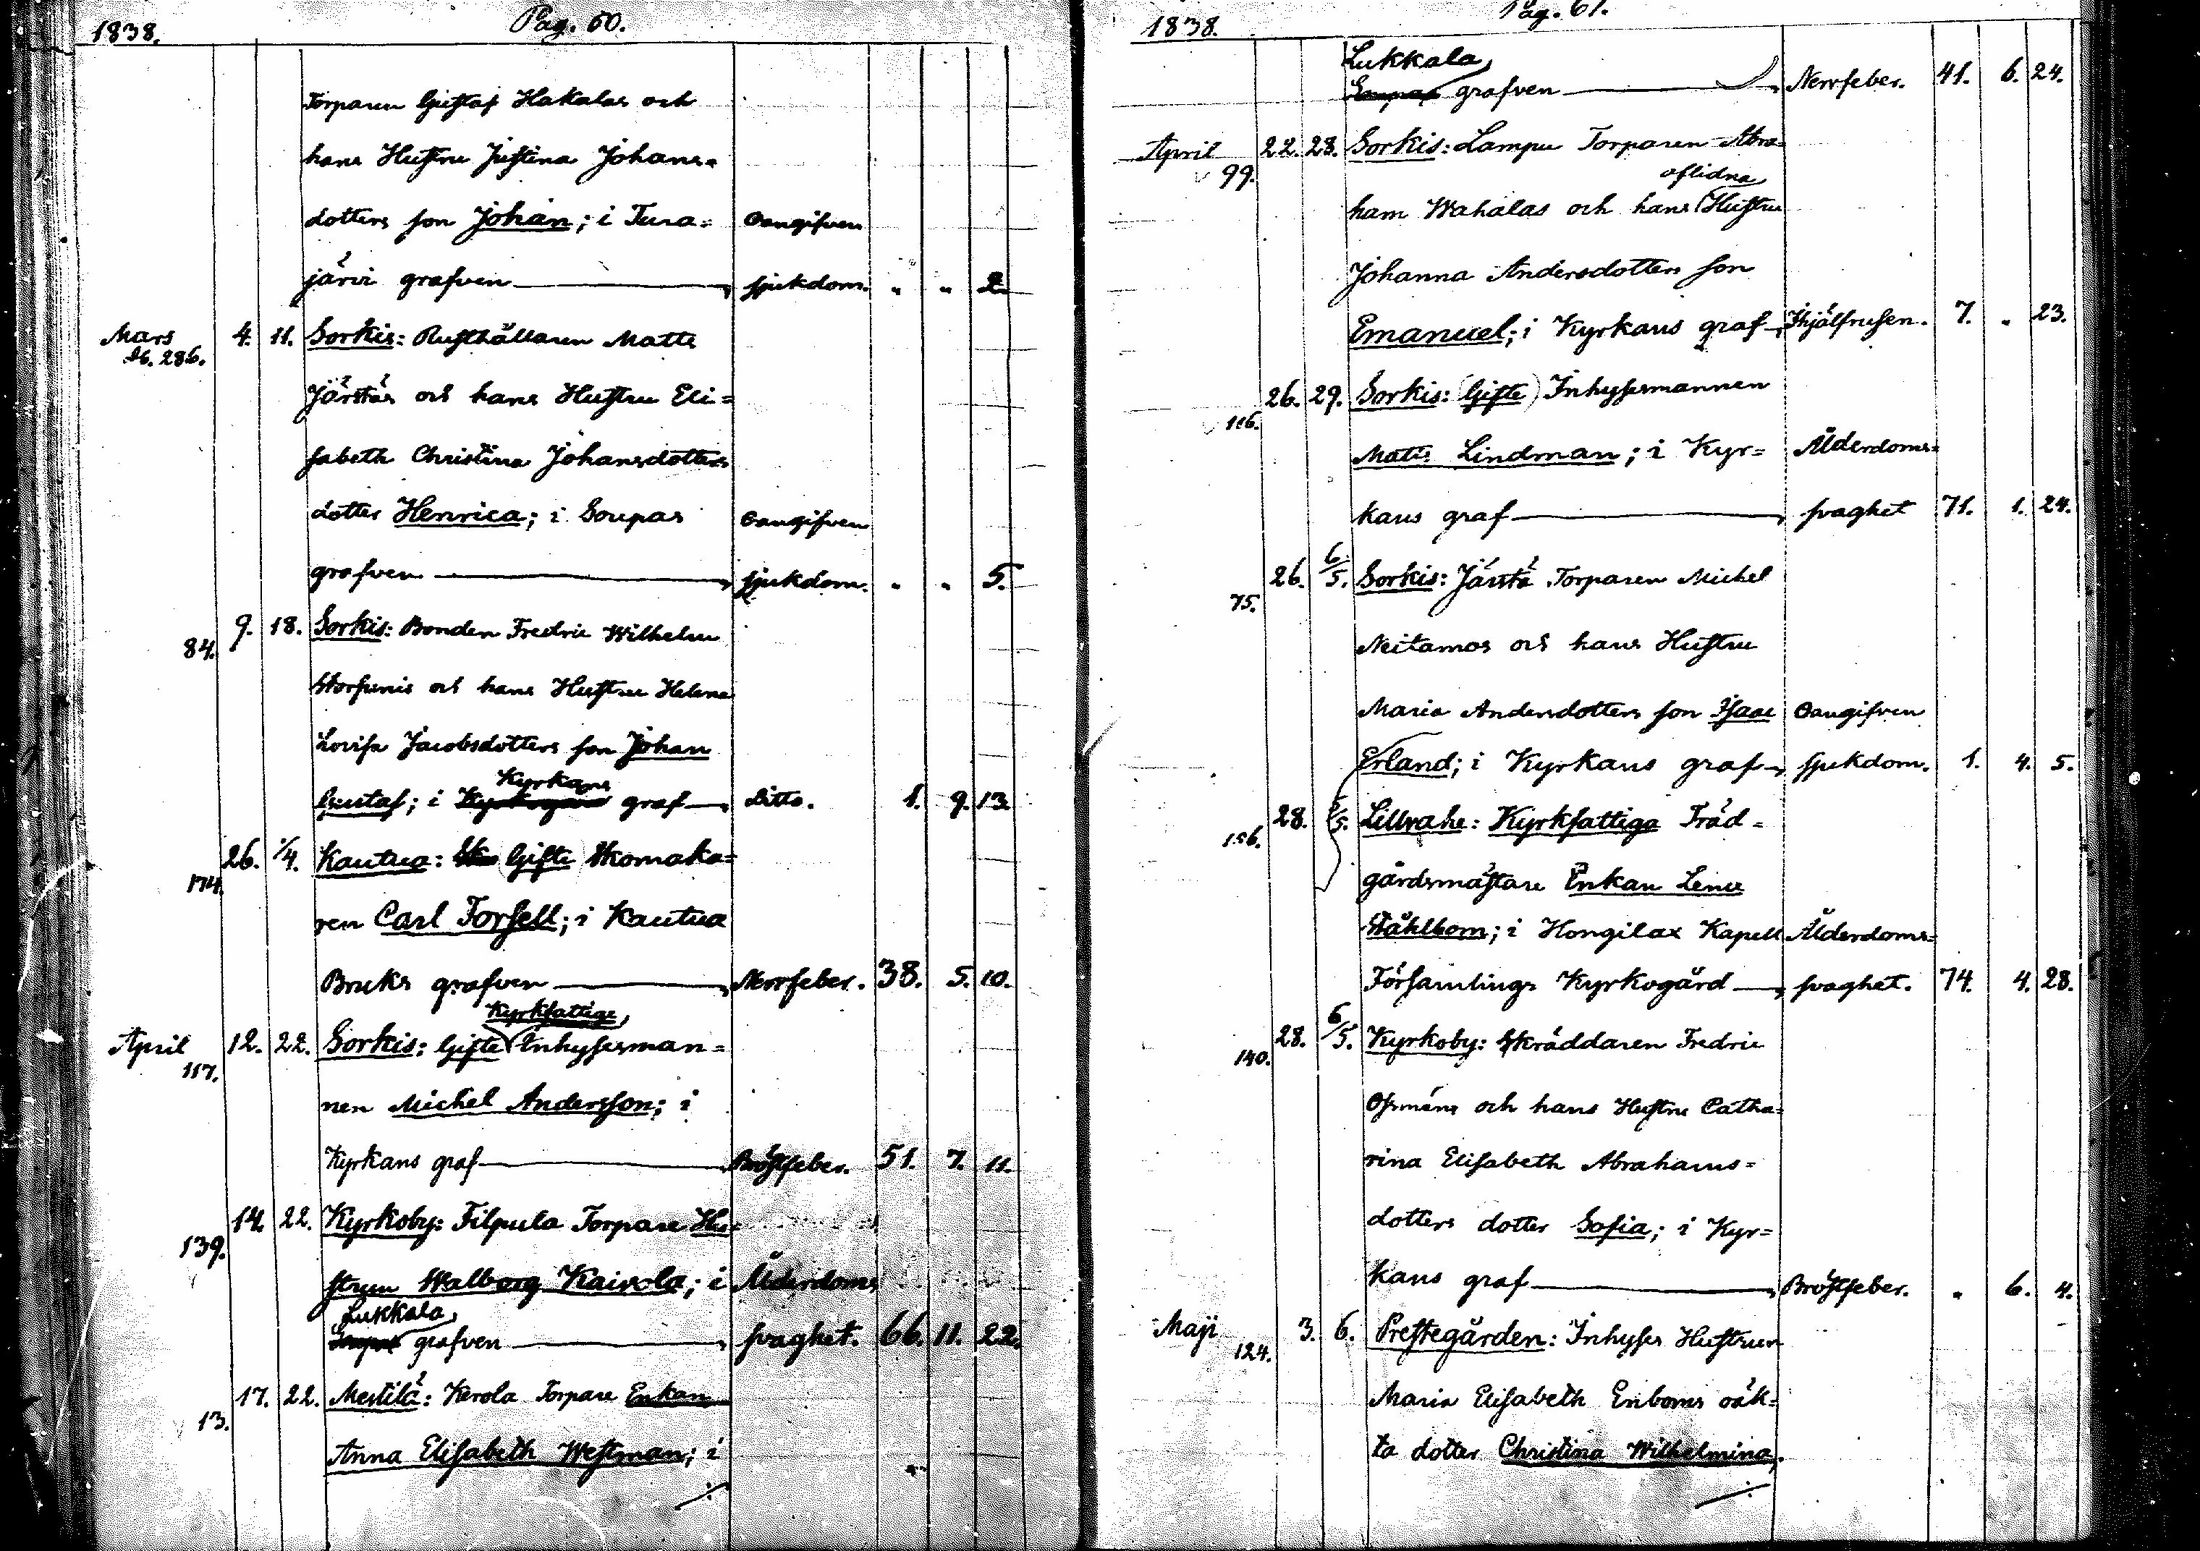 1838. Pag. 60.
Torparen Gustaf Hakalas och
hans Hustru Justina Johans=
dotters son Johan; i Tura= Oangifven
järvi grafven — sjukdom. " " 2.
Mars 4. 11. Sorkis: Rusthållaren Matts
Lb. 286.
Järstäs och hans Hustru Eli=
sabeth Christina Johansdotters
dotter Henrica; i Soupas Oangifven
grafven — sjukdom. " " 5.
84. 9. 18. Sorkis: Bonden Fredric Wilhelm
Storsunis och hans Hustru Helena
Lovisa Jacobsdotters son Johan
Kyrkans
Gustaf; i Kyrkogårds graf — Ditto. 1. 9. 13.
174. 26. 1/4. Kautua: Sko Gifte Skomaka=
ren Carl Forsell; i Kautua
Bruks grafven — Nervfeber. 38. 5. 10.
Kyrkfattige
April 12. 22. Sorkis: Gifte Inhysesman=
117.
nen Michel Andersson; i
Kyrkans graf — Bröstfeber. 51. 7. 11.
139. 14. 22. Kyrkoby: Filpula Torpare Hu=
strun Walborg Kaivola; i Ålderdoms
Lukkala
Soupas grafven — svaghet. 66. 11. 22.
13. 17. 22. Mestilä: Kerola Torpare Enkan
Anna Elisabeth Westman; i
1838. Pag. 61.
Lukkala
Soupas grafven — Nervfeber. 41. 6. 24.
April 22. 28. Sorkis: Lampu Torparen Abra=
99. aflidna
ham Wahalas och hans Hustru
Johanna Andersdotters son
Emanuel; i Kyrkans graf — Ihjälfrusen. 7. " 23.
116. 26. 29. Sorkis: (Gifte) Inhysesmannen
Matts Lindman; i Kyr= Ålderdoms=
kans graf — svaghet 71. 1. 24.
75. 26. 6/5. Sorkis: Järstä Torparen Michel
Neitamos och hans Hustru
Maria Andersdotters son Isaac Oangifven
Erland; i Kyrkans graf — sjukdom. 1. 4. 5.
156. 28. /5. Lillrahe: Kyrkfattiga Träd=
gårdsmästare Enkan Lena
Ståhlbom; i Hongilax Kapell Ålderdoms=
Församlings Kyrkogård — svaghet. 74. 4. 28.
140. 28. 6/5. Kyrkoby: Skräddaren Fredric
Osmans och hans Hustru Catha=
rina Elisabeth Abrahams=
dotters dotter Sofia; i Kyr=
kans graf — Bröstfeber. " 6. 4.
Maji 3. 6. Prestegården: Inhyses Hustrun
124.
Maria Elisabeth Enboms oäk=
ta dotter Christina Wilhelmina,